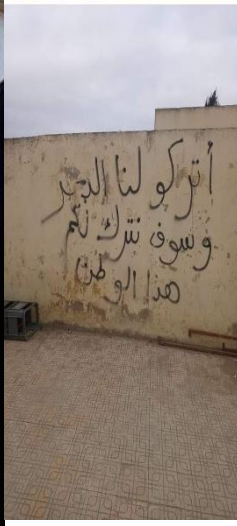 أتركو لنا البحر
وسوف نترك لكم
هذا الوطن